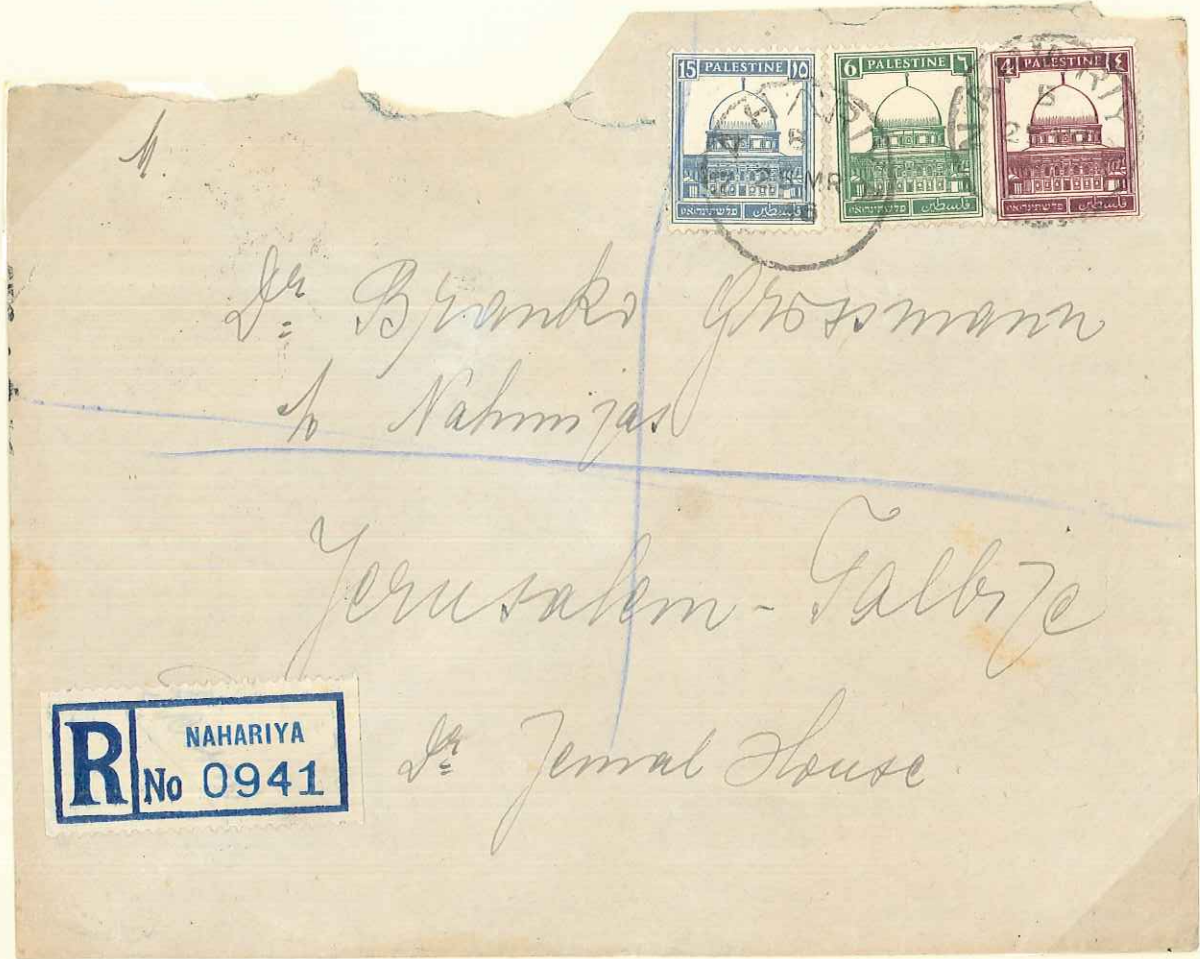 15 PALESTINE ١٥
פלשתינה־א״י فلسطين
6 PALESTINE ٦
פלשתינה־א״י فلسطين
4 PALESTINE ٤
פלשתינה־א״י فلسطين
M.
Dr Branko Grossmann
c/o Nahmijas
Jerusalem - Talbije
Dr Jemal House
R NAHARIYA
No 0941